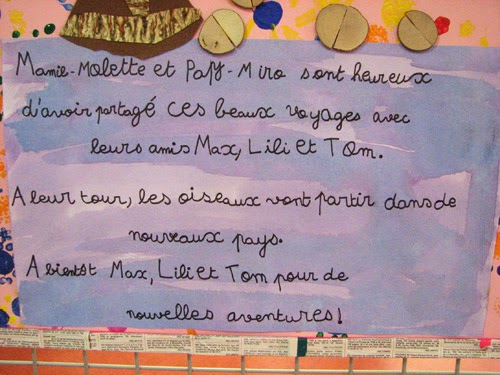 Mamie-Molette et Papy-Miro sont heureux
d'avoir partagé ces beaux voyages avec
leurs amis Max, Lili et Tom.
A leur tour, les oiseaux vont partir dans de
nouveaux pays.
A bientôt Max, Lili et Tom pour de
nouvelles aventures!